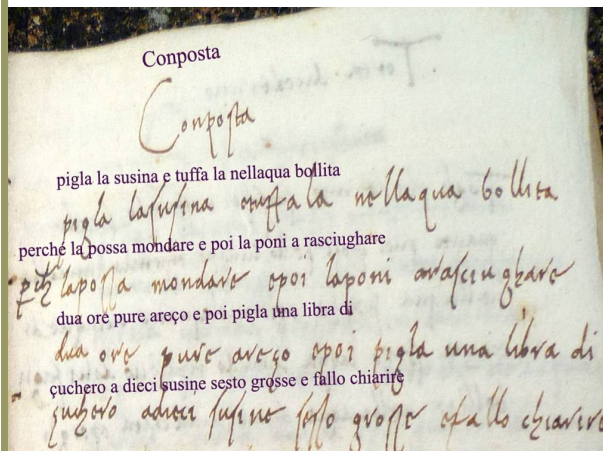 Conposta
Conposta
pigla la susina e tuffa la nellaqua bollita
pigla lasusina etuffala nellaqua bollita
perché la possa mondare e poi la poni a rasciughare
perché lapossa mondare epoi laponi arasciughare
dua ore pure areço e poi pigla una libra di
dua ore pure areço epoi pigla una libra di
çuchero a dieci susine sesto grosse e fallo chiarire
çuchero adieci susine sesto grosse efallo chiarire